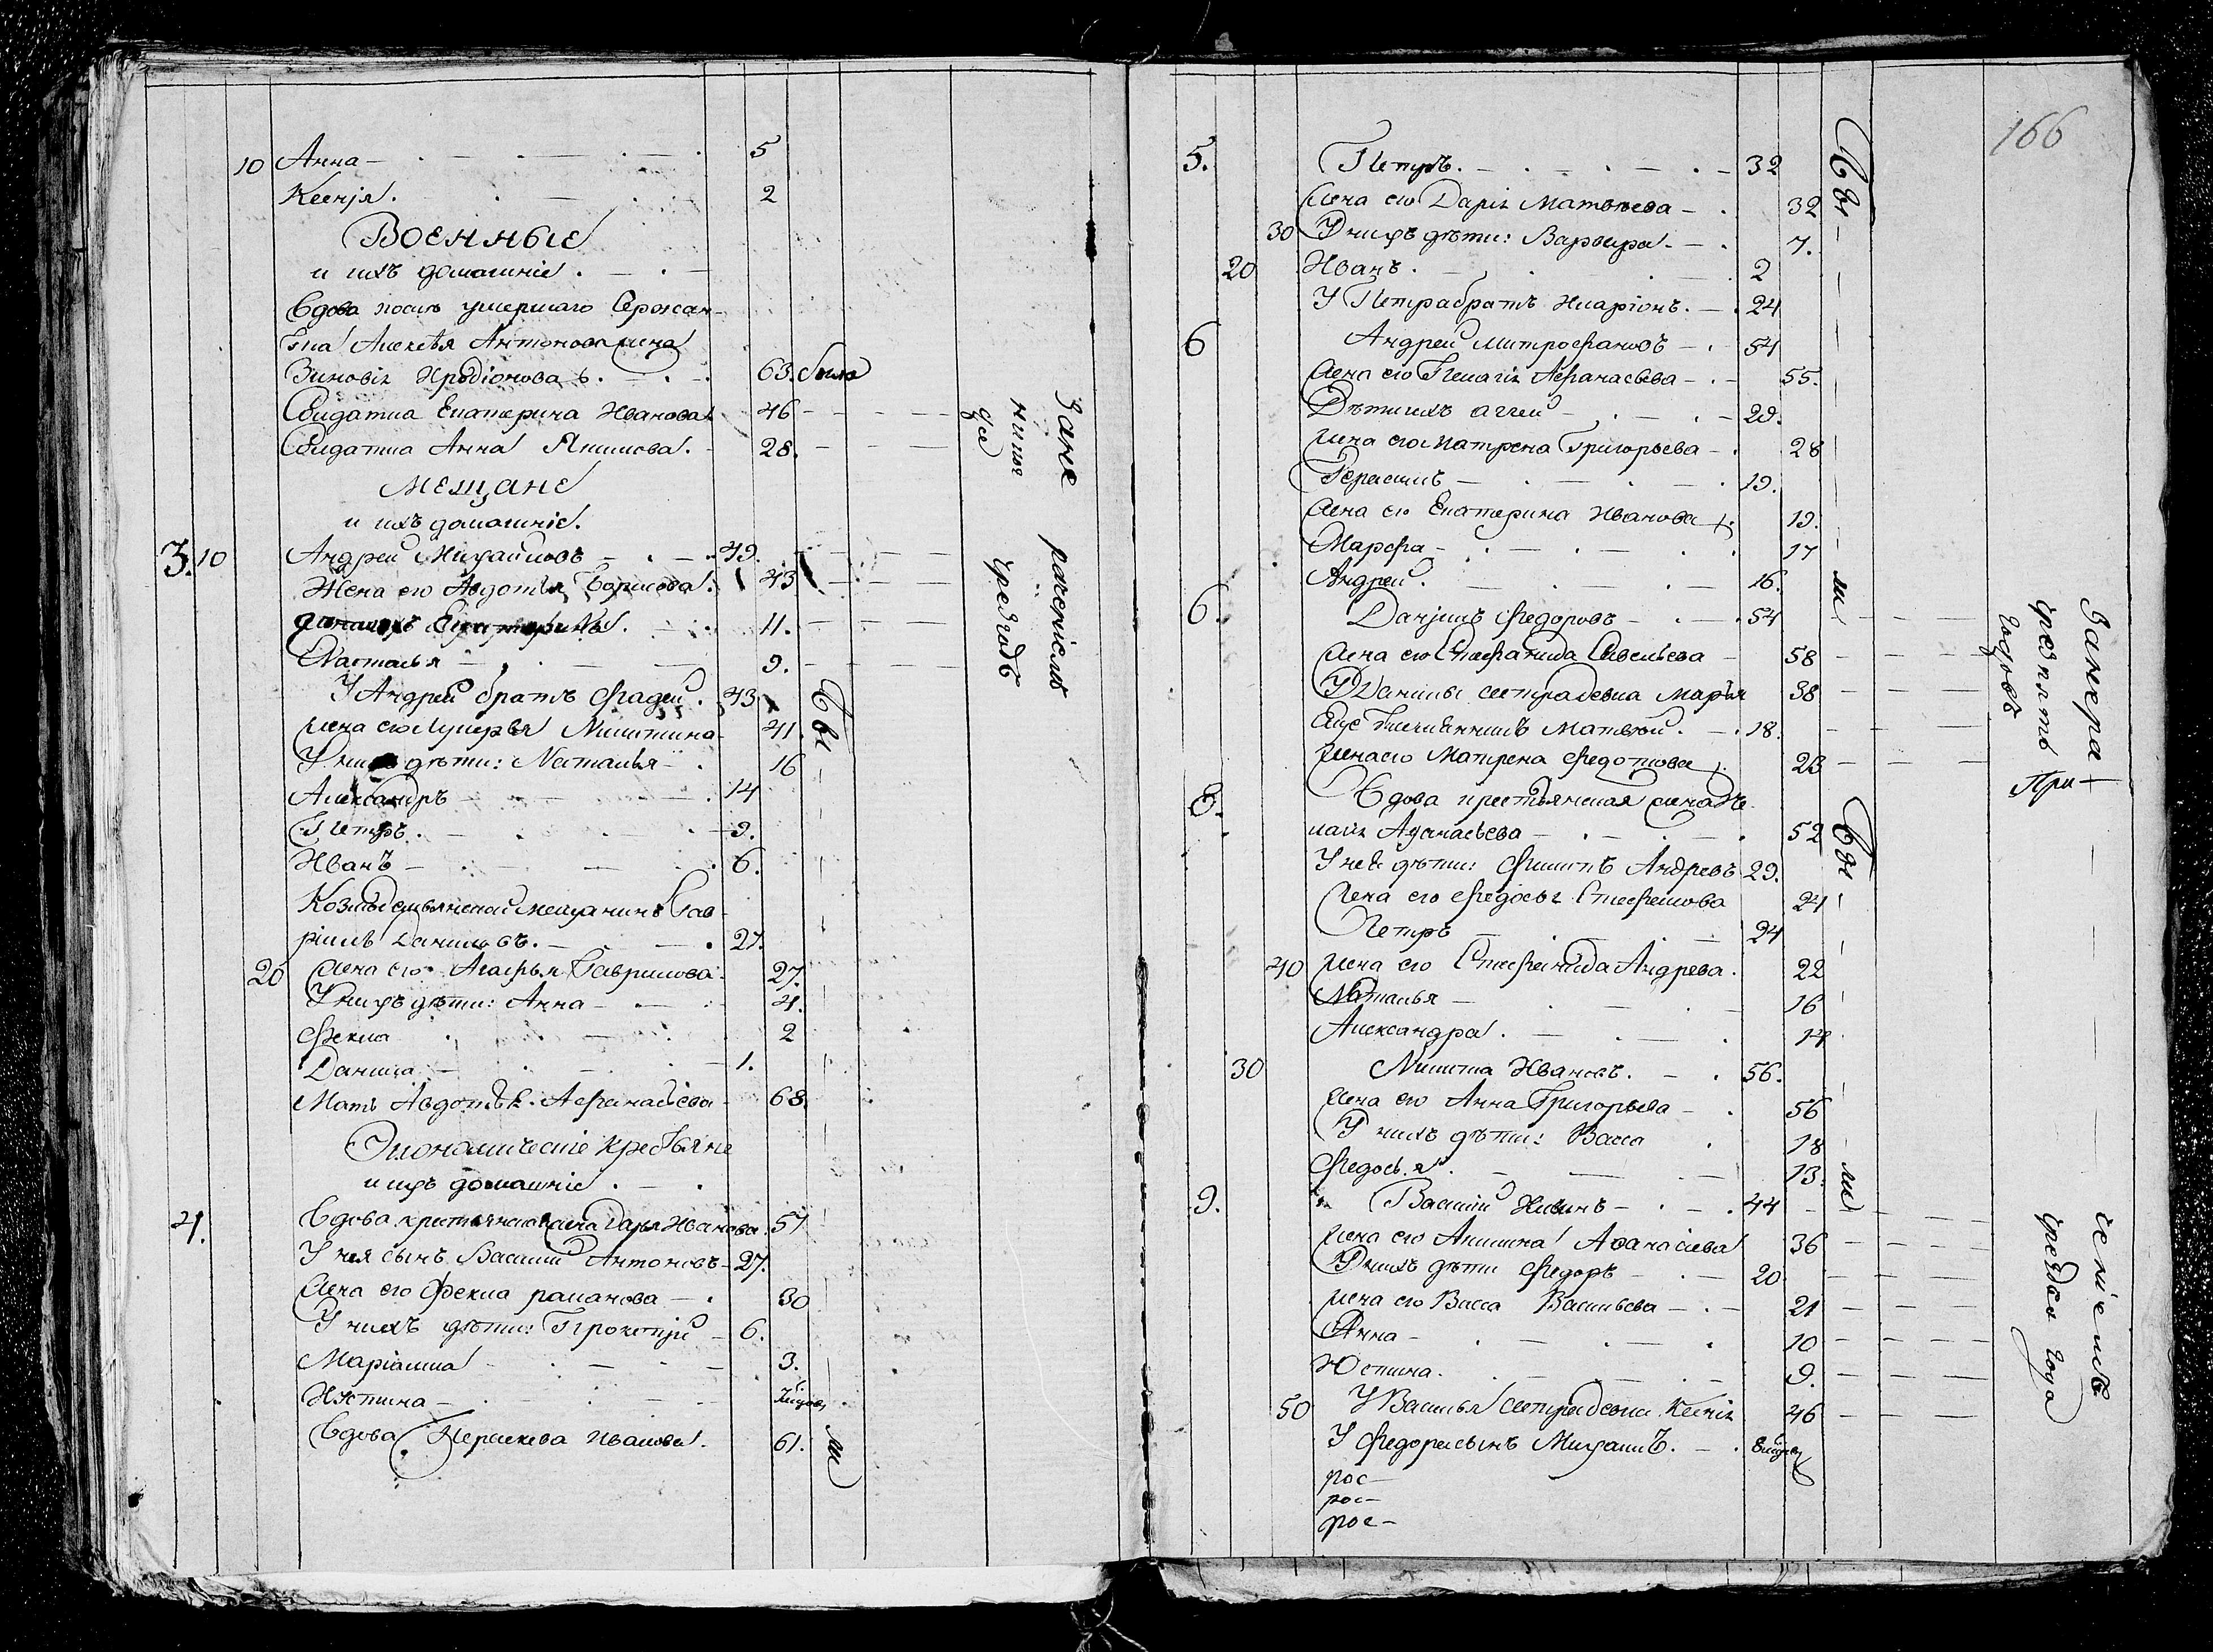 10 Анна 5
Ксенїя 2
Военные
и ихъ домашнїе
Вдова послѣ умершаго Сержан-
та Алексѣя Антонова жена
Зиновія Иродіонова 63. была
Солдатка Екатерина Иванова 46
Солдатка Анна Якимова. 28.
Мещане
и ихъ домашніе.
3. 10 Андрей Михайловъ 49.
Жена его Авдотья Борисова 43
Екатерина 11.
Наталья 9.
У Андрея братъ Фадей 43
жена его Никитина 41.
У нихъ дѣти: Наталья 16
Александръ 14
Петръ 9.
Иванъ 6.
Козмодемьянской мещанинъ Гав-
рїилъ Даниловъ. 27.
20 Жена его Агафья Гаврилова 27.
У нихъ дѣти: Анна 4.
Фекла 2
Данила 1.
Мать Авдотья Афанасьева 68.
Экономическіе крестьяне
и ихъ домашніе
4. Вдова крестьянская жена Дарья Иванова 57
У нея сынъ Василій Антоновъ 27.
Жена его Фекла романова 30
У нихъ дѣти: Прокопїй 6.
Маріамна 3.
Иустина
Вдова Иванова. 61.
Были
Зане расписмъ
нихъ
где
чрезгодъ
166
5. Петръ. 32
Жена его Дарія Матвѣева 32
30 У нихъ дѣти: Варвара 7.
20 Иванъ. 2
У Петра братъ Иларіонъ. 24
6 Андрей Митрофановъ 54
Жена его Пелагія Афанасьева 55.
Дѣти ихъ Аггей 29.
жена его Матрена Григорьева 28
Герасимъ 19.
Жена его Екатерина Иванова 19.
Марфа 17
Андрей. 16.
6. Данїилъ Федоровъ 54
Жена его Стефанида Савельева 58
У Данилы сестра девка Марья 38
Еще племянникъ Матвей. 18.
Жена его Матрена Федотова 23
8. Вдова крестьянская жена Пе-
лагія Афанасьева 52
У неи дѣти: Филипъ Андревъ 29.
Жена его Федосья Стефанова 24
Петръ 24
40 жена его Стефанида Андрева. 22
Наталья 16
Александра. 14
30 Никита Ивановъ. 56.
Жена его Анна Григорьева 56
У нихъ дѣти: Васса 18
Федосья. 13.
9. Василій 44
жена его Акилина Афанасьева 36
У нихъ дѣти Федоръ 20
жена его Васса Васильева 21
Анна 10
Юстина. 9.
50 У Василья сестра девка Ксенія 46
У Федора сынъ Михаилъ.
рос-
рос-
рос-
Были
Были
чрезпять
годовъ
При-
чрездва года